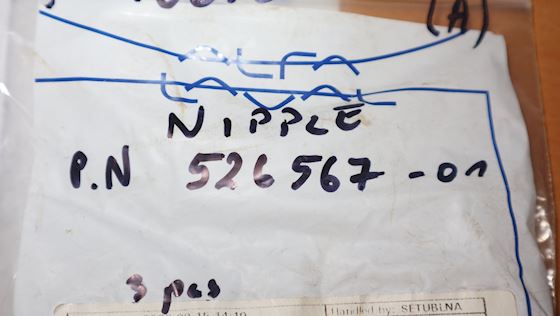 (A)
ALFA
LAVAL
NIPPLE
P.N 526567-01
3 pcs
Handled by: SETUBLNA